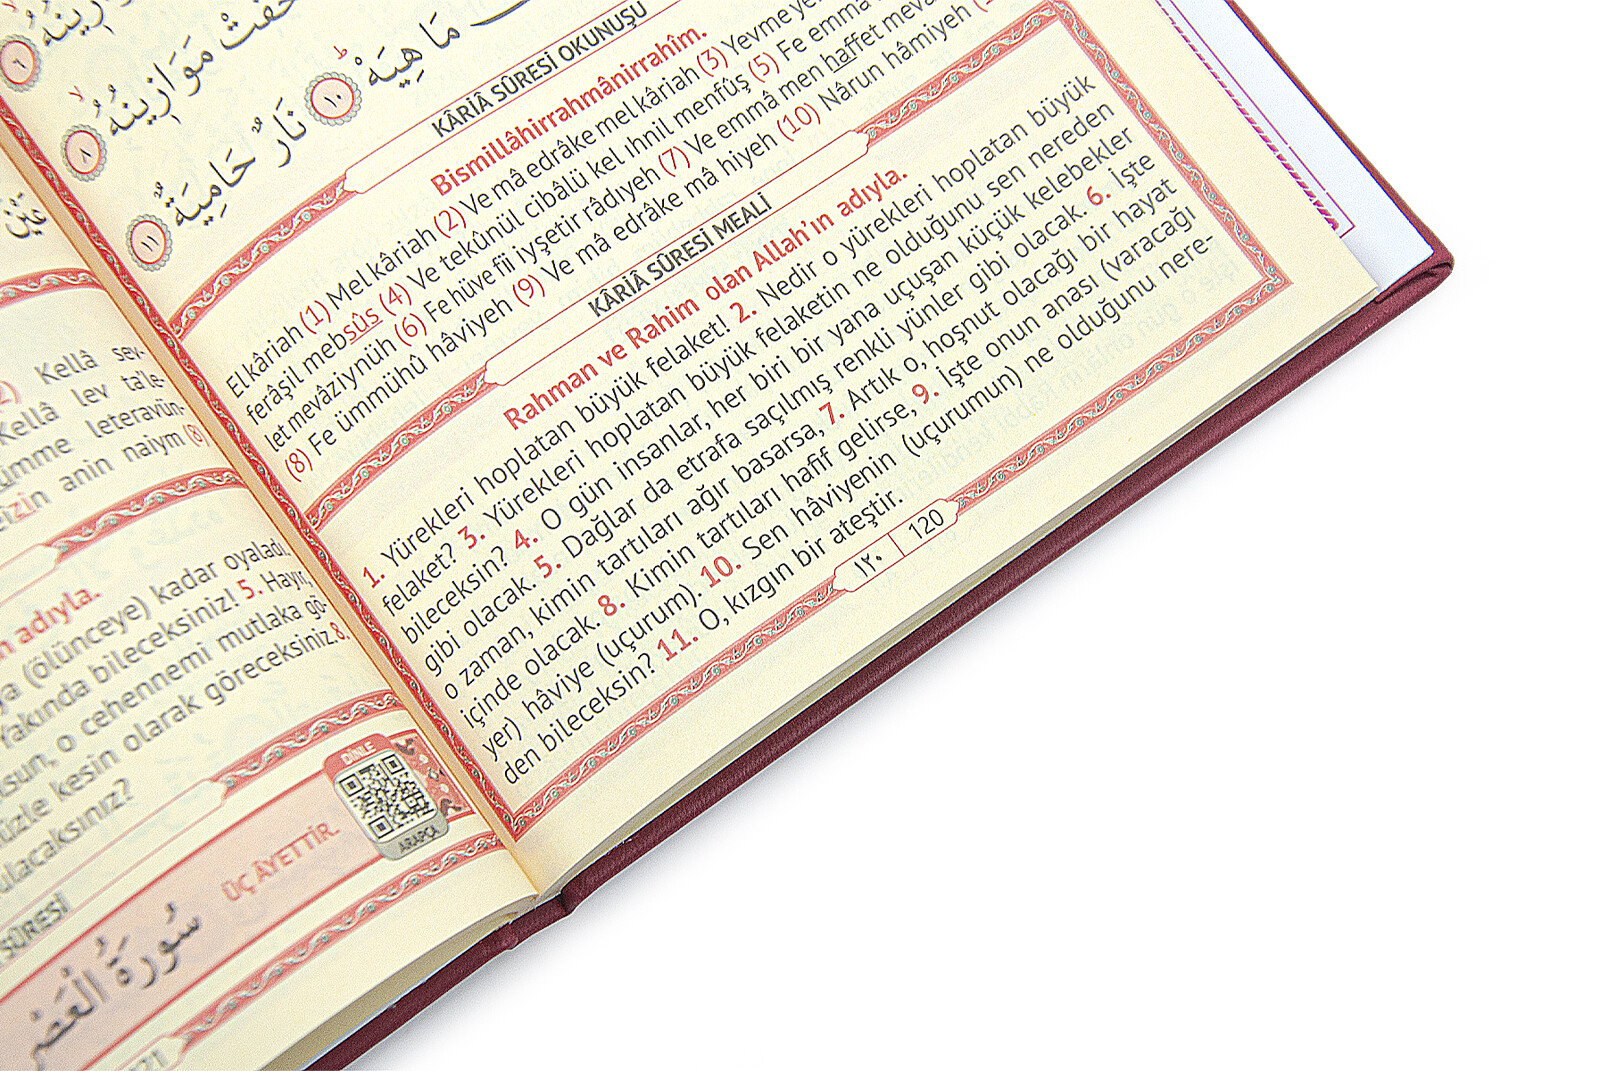 مَوَازِينُهُ ٦
خَفَّتْ مَوَازِينُهُ ٨
مَا هِيَهْ ١٠ نَارٌ حَامِيَةٌ ١١
KÂRİÂ SÛRESİ OKUNUŞU
Bismillâhirrahmânirrahîm.
El kâriah (1) Mel kâriah (2) Ve mâ edrâke mel kâriah (3) Yevme
ferâşil mebsûs (4) Ve tekûnül cibâlü kel ıhnil menfûş (5) Fe emmâ
let mevâziynüh (6) Fe hüve fii ıyşetir râdıyeh (7) Ve emmâ men haffet
(8) Fe ümmühû hâviyeh (9) Ve mâ edrâke mâ hiyeh (10) Nârun hâmiyeh
KÂRİÂ SÛRESİ MEALİ
Rahman ve Rahim olan Allah'ın adıyla.
1. Yürekleri hoplatan büyük felaket! 2. Nedir o yürekleri hoplatan büyük
felaket? 3. Yürekleri hoplatan büyük felaketin ne olduğunu sen nereden
bileceksin? 4. O gün insanlar, her biri bir yana uçuşan küçük kelebekler
gibi olacak. 5. Dağlar da etrafa saçılmış renkli yünler gibi olacak. 6. İşte
o zaman, kimin tartıları ağır basarsa, 7. Artık o, hoşnut olacağı bir hayat
içinde olacak. 8. Kimin tartıları hafif gelirse, 9. İşte onun anası (varacağı
yer) hâviye (uçurum). 10. Sen hâviyenin (uçurumun) ne olduğunu nere-
den bileceksin? 11. O, kızgın bir ateştir.
١٢٠ 120
Kellâ sev-
Kellâ lev ta'le-
ümme leteravün-
izin anin naiym (8)
adıyla.
(ölünceye) kadar oyaladı.
Yakında bileceksiniz! 5. Hayır,
o cehennemi mutlaka gö-
kesin olarak göreceksiniz 8.
DİNLE
ARAPÇA
ÜÇ ÂYETTİR.
SÛRESİ
سُورَةُ الْعَصْرِ